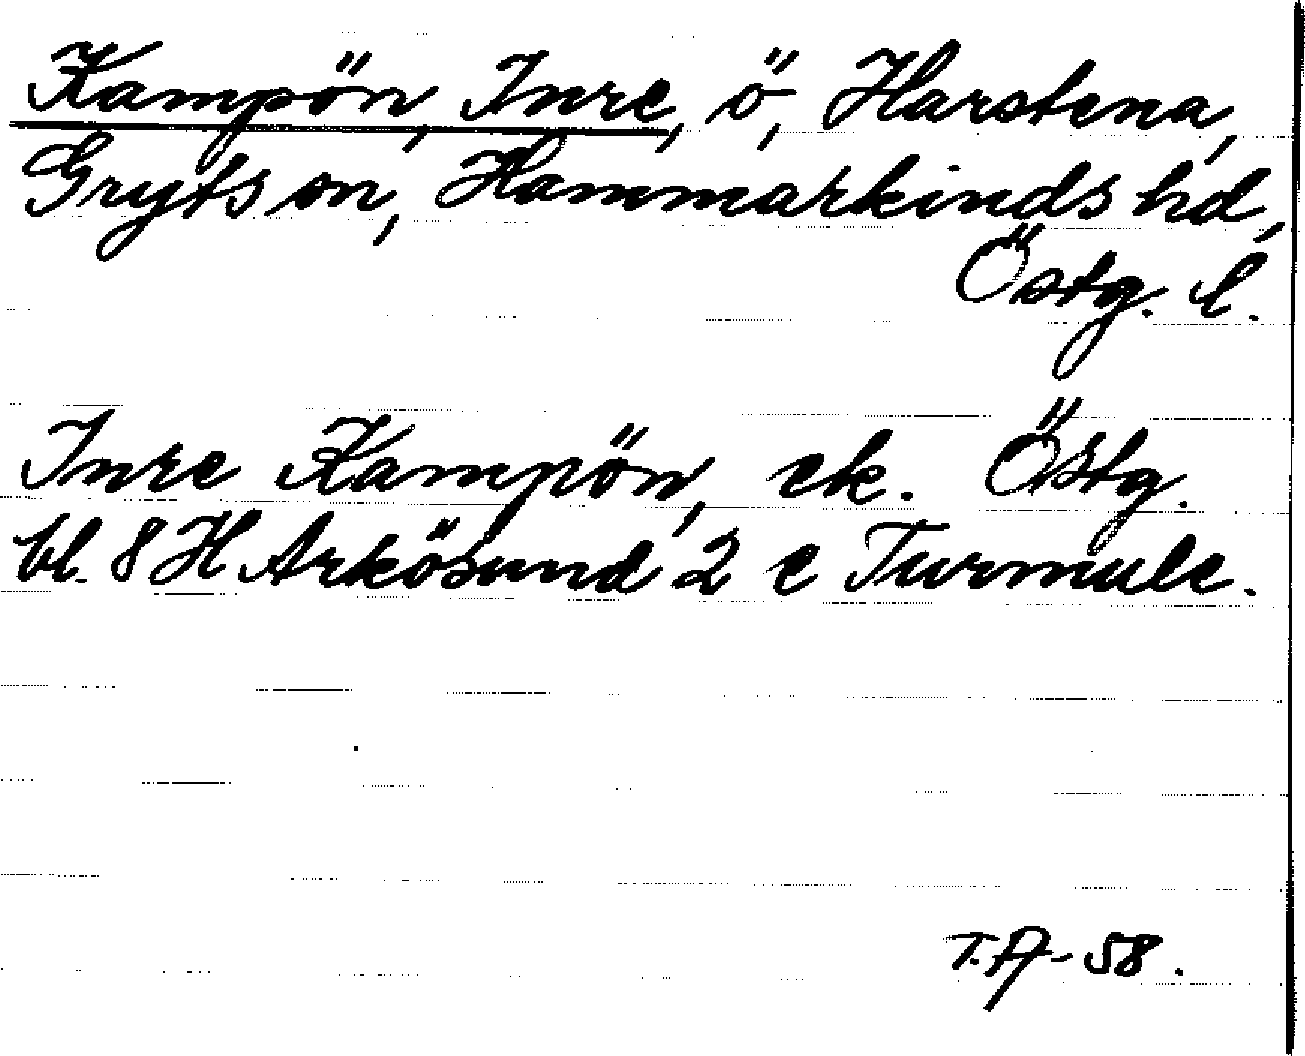 Kampön, Inre, ö, Harstena,
Gryts sn, Hammarkinds hd,
Östg. l.
Inre Kampön, ek. Östg.
bl. 8 H Arkösund 2 c Turmulc.
T.A-58.